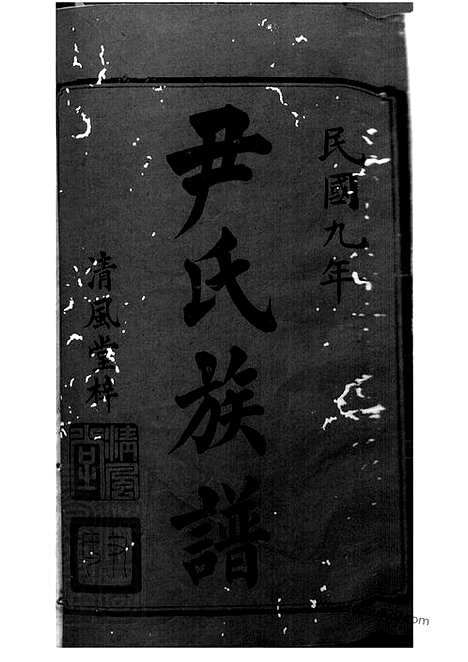 民國九年
尹氏族譜
清風堂梓
清風堂
om